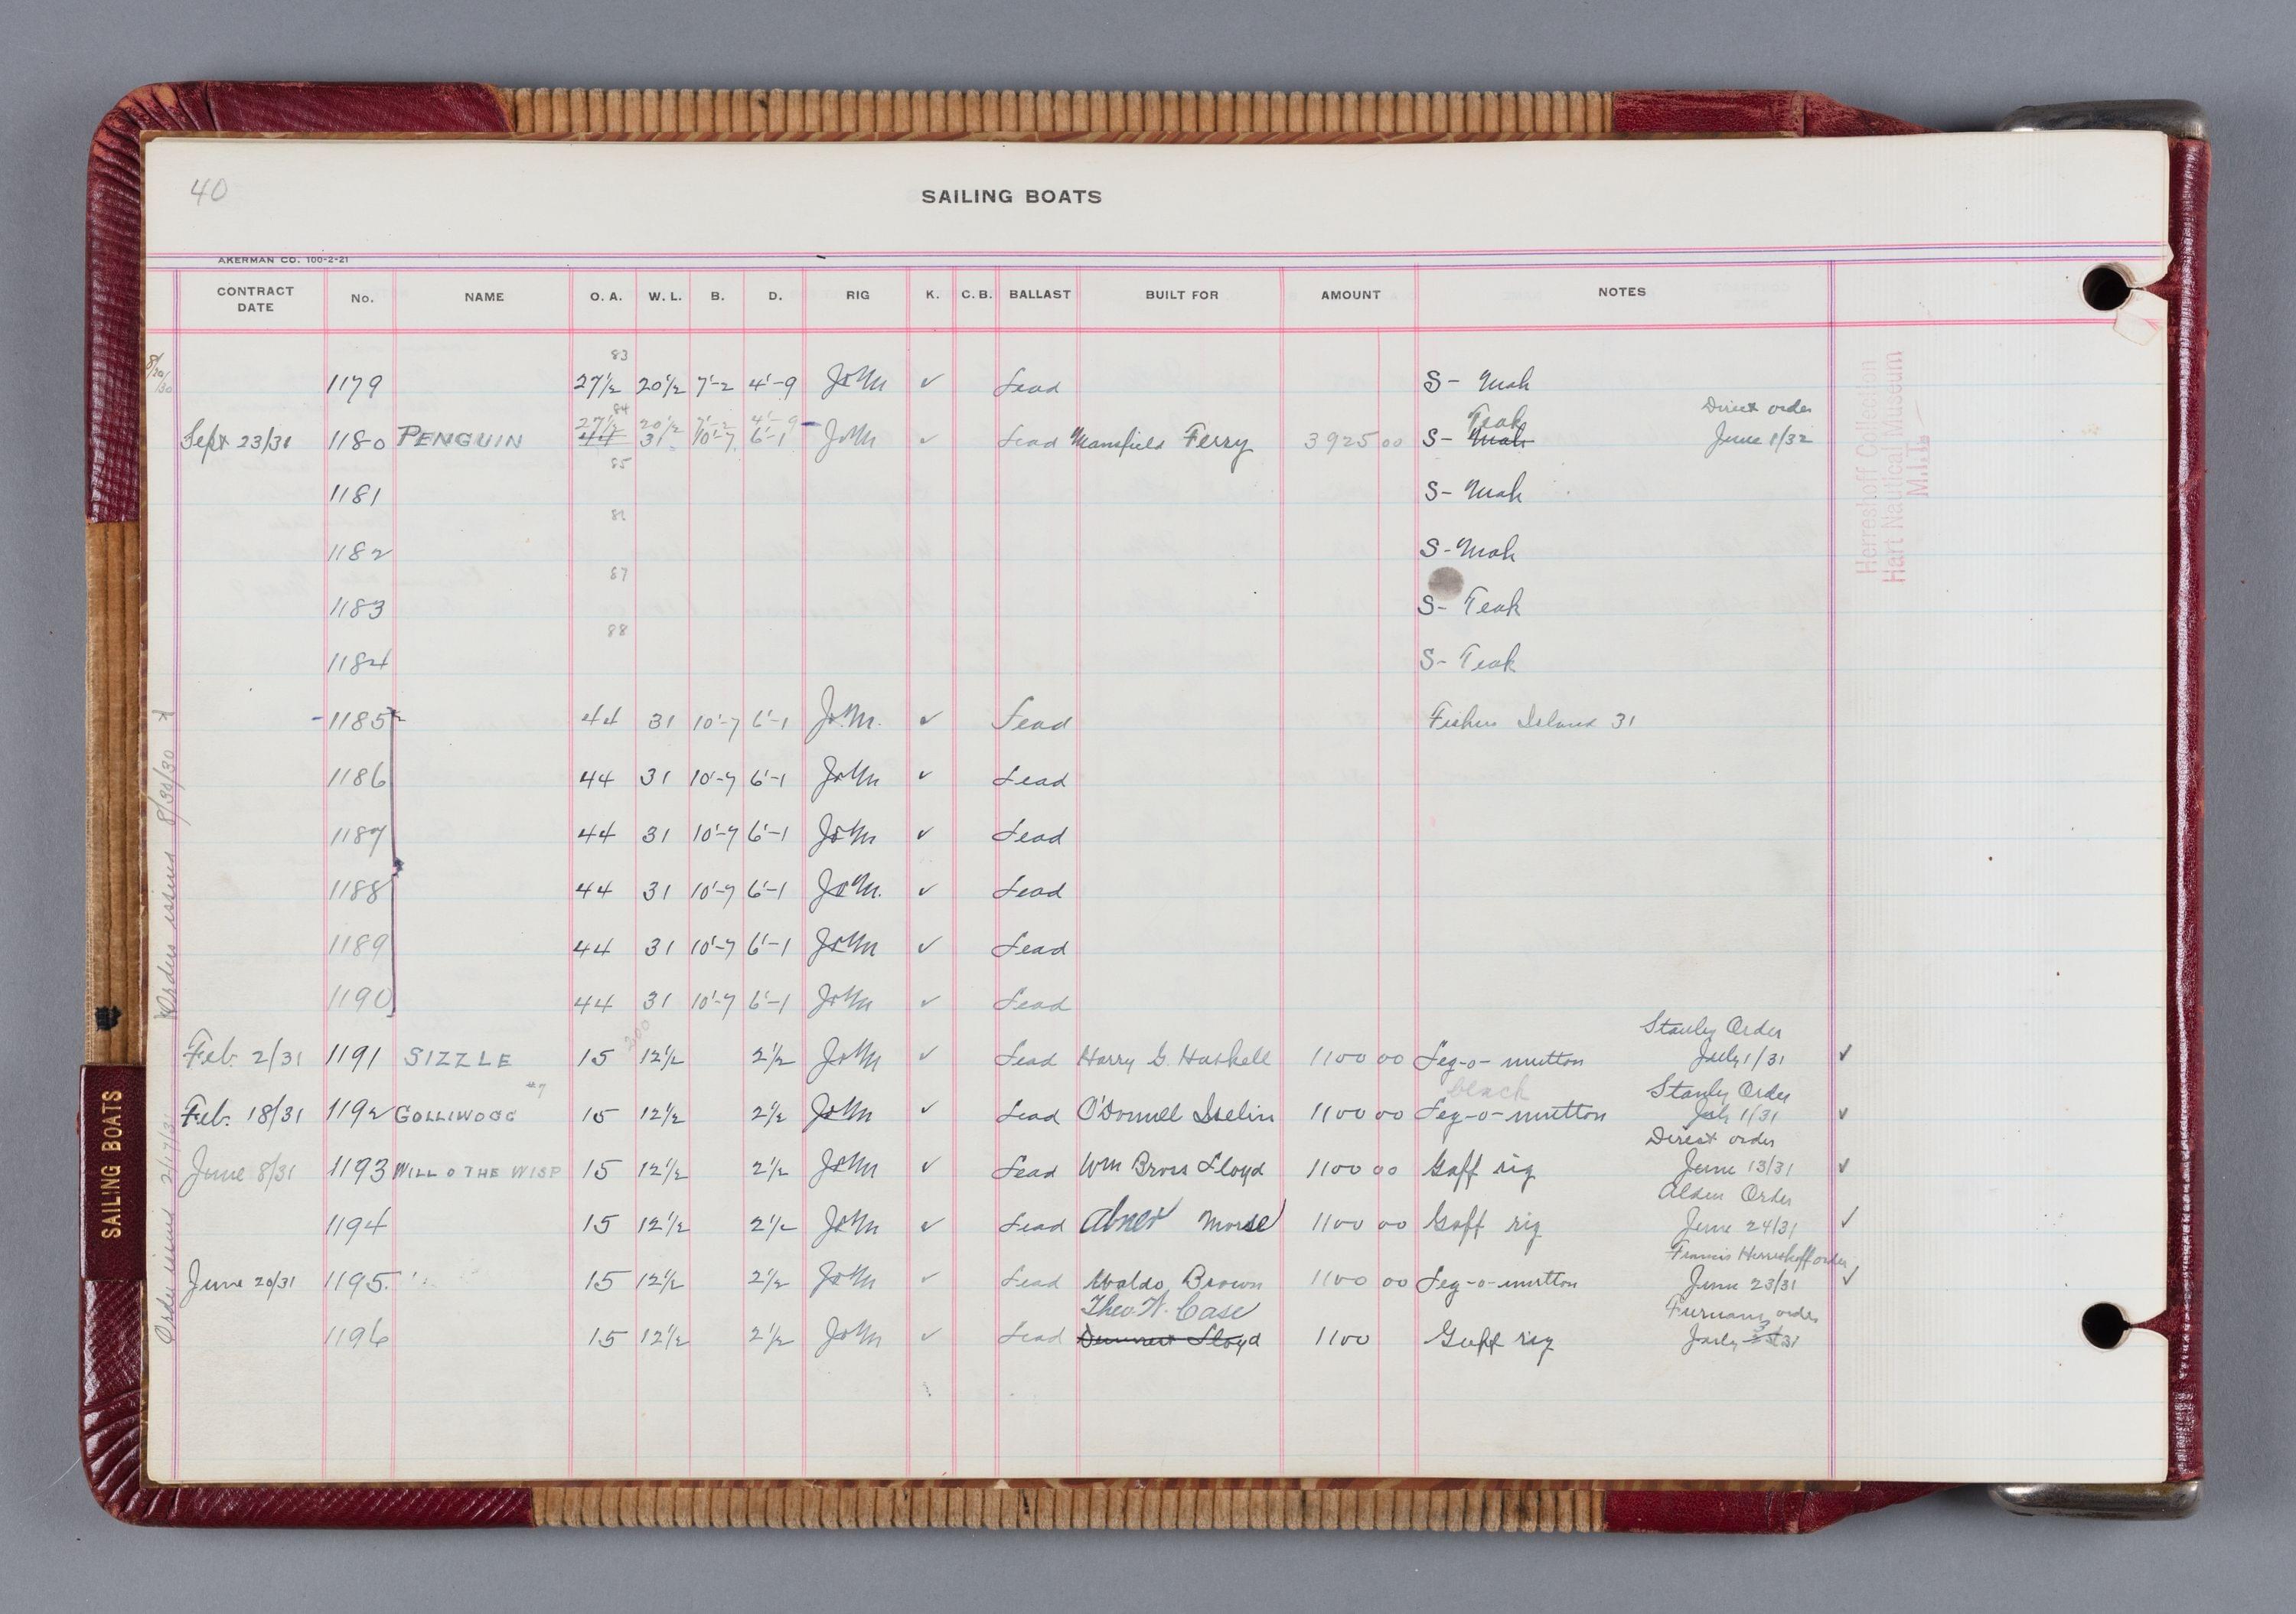 40
SAILING BOATS
AKERMAN CO. 100-2-21
CONTRACT DATE No. NAME O. A. W. L. B. D. RIG K. C. B. BALLAST BUILT FOR AMOUNT NOTES
8/20/30
83
1179 27½ 20½ 7'-2 4'-9 J&M ✓ Lead S- Mah
84
27½ 20½ 7'-2 4'-9 Teak Direct order
Sept 23/31 1180 PENGUIN 44 31 10'-7 6'-1 J&M ✓ Lead Mansfield Ferry 3925 00 S- Mah June 1/32
85
1181 S- Mah
86
1182 S- Mah
87
1183 S- Teak
88
1184 S- Teak
1185 44 31 10'-7 6'-1 J&M. ✓ Lead Fishers Island 31
1186 44 31 10'-7 6'-1 J&M ✓ Lead
1187 44 31 10'-7 6'-1 J&M ✓ Lead
1188 44 31 10'-7 6'-1 J&M. ✓ Lead
1189 44 31 10'-7 6'-1 J&M ✓ Lead
1190 44 31 10'-7 6'-1 J&M ✓ Lead
Orders issued 8/30/30
Stanley Order
Feb. 2/31 1191 SIZZLE 15 12½ 2½ J&M ✓ Lead Harry G. Haskell 1100 00 Leg-o-mutton July 1/31 ✓
#7 black Stanley Order
Feb. 18/31 1192 GOLLIWOGG 15 12½ 2½ J&M ✓ Lead O'Donnell Iselin 1100 00 Leg-o-mutton July 1/31 ✓
Direct order
June 8/31 1193 WILL O THE WISP 15 12½ 2½ J&M ✓ Lead Wm Bross Lloyd 1100 00 Gaff rig June 13/31 ✓
Alden Order
1194 15 12½ 2½ J&M ✓ Lead Abner Morse 1100 00 Gaff rig June 24/31 ✓
Francis Herreshoff order
June 20/31 1195. 15 12½ 2½ J&M ✓ Lead Waldo Brown 1100 00 Leg-o-mutton June 23/31 ✓
Theo. W. Case Furnans order
1196 15 12½ 2½ J&M ✓ Lead Lloyd 1100 Gaff rig July 31
Order issued 2/17/31
Herreshoff Collection
Hart Nautical Museum
M.I.T.
SAILING BOATS